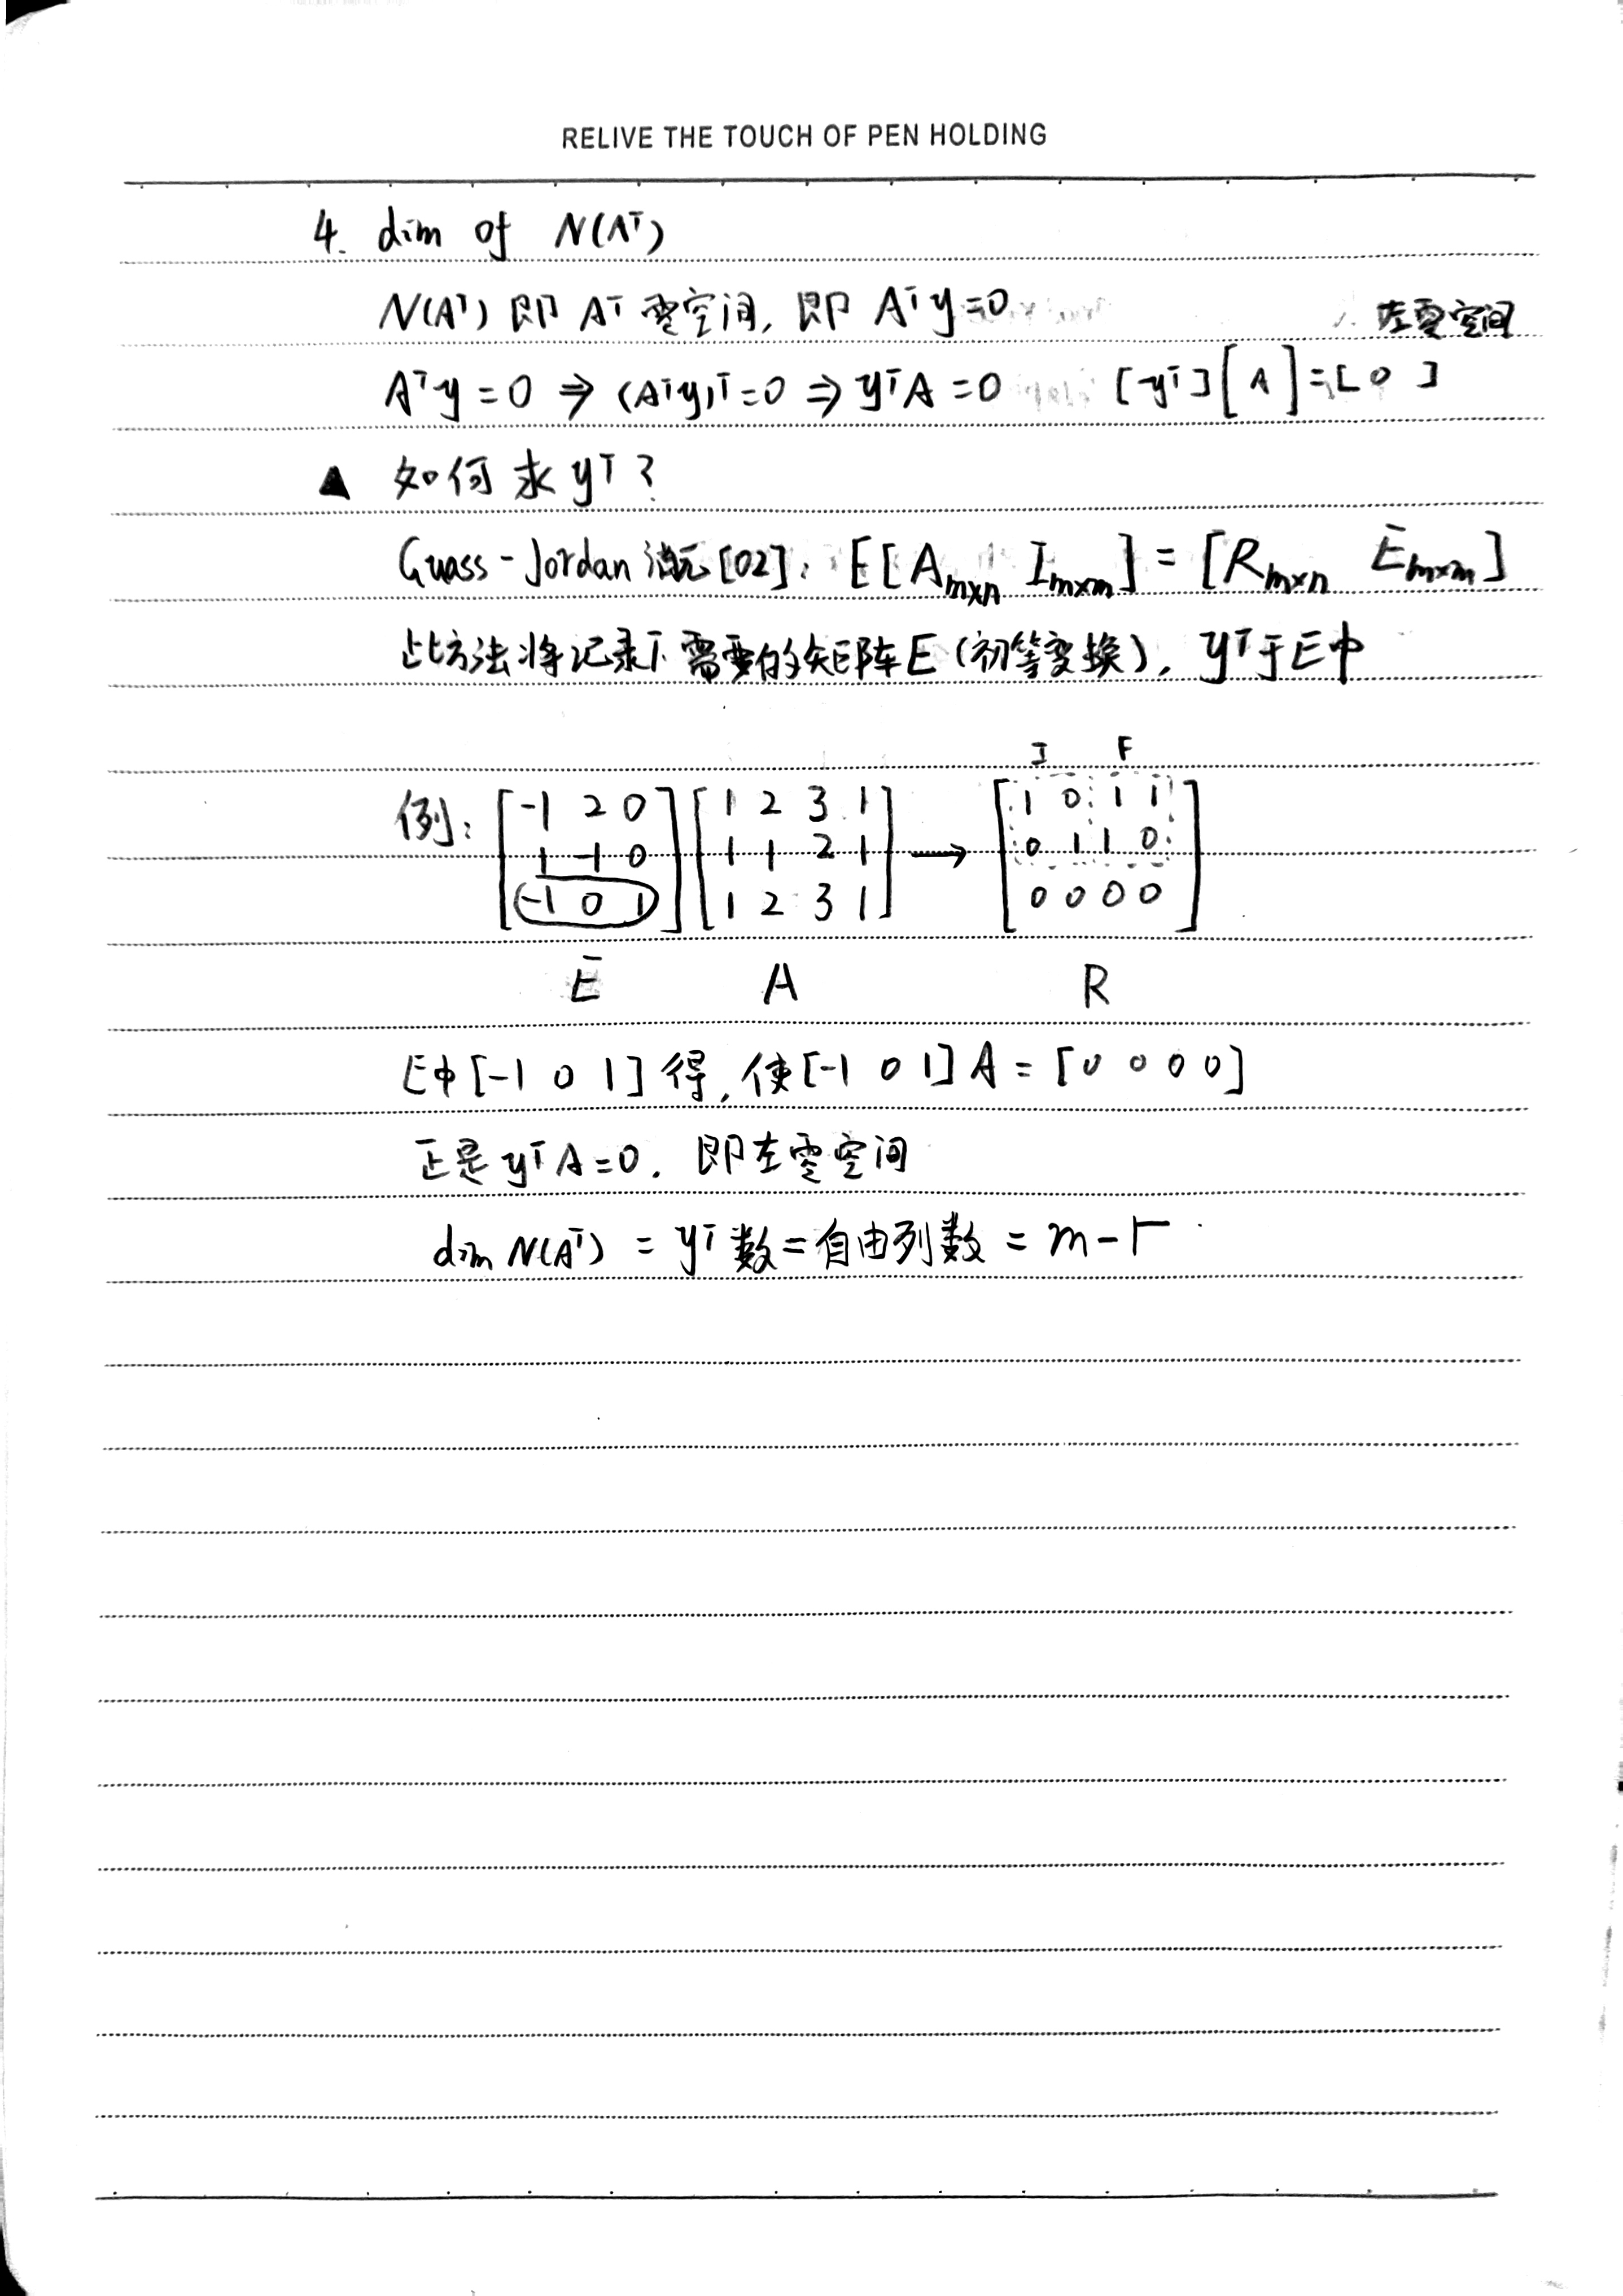 RELIVE THE TOUCH OF PEN HOLDING
4. dim of N(Aᵀ)
N(Aᵀ) 即 Aᵀ 零空间, 即 Aᵀy=0 左零空间
Aᵀy = 0 ⇒ (Aᵀy)ᵀ=0 ⇒ yᵀA = 0 [yᵀ][A]=[0]
▲ 如何求 yᵀ?
Guass-Jordan 消元[02]: E[Aₘₓₙ Iₘₓₘ] = [Rₘₓₙ Eₘₓₘ]
此方法将记录下需要的矩阵E(初等变换), yᵀ于E中
I F
例: [-1 2 0] [1 2 3 1] [1 0 1 1]
[1 -1 0] [1 1 2 1] → [0 1 1 0]
[-1 0 1] [1 2 3 1] [0 0 0 0]
E A R
E中[-1 0 1]得, 使[-1 0 1]A = [0 0 0 0]
正是 yᵀA=0. 即左零空间
dim N(Aᵀ) = yᵀ数 = 自由列数 = m-r